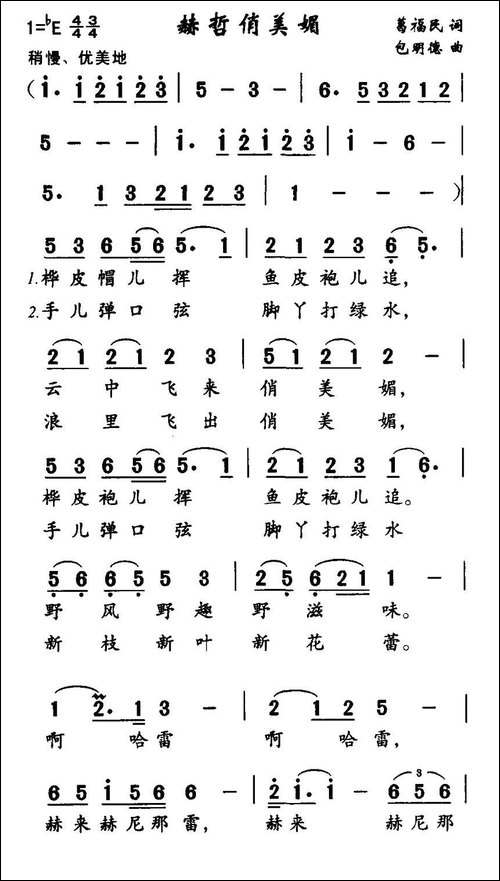 1=♭E 4/4 3/4 赫哲俏美媚 葛福民 词
包明德 曲
稍慢、优美地
(i̇. i̇ 2̇ i̇ 2̇ 3̇ | 5 - 3 - | 6. 5 3 2 1 2 |
5 - - - | i̇. i̇ 2̇ i̇ 2̇ 3̇ | i̇ - 6 - |
5. 1 3 2 1 2 3 | 1 - - - )|
5 3 6 5 6 5. 1 | 2 1 2 3 6̣ 5̣. |
1.桦皮帽儿挥 鱼皮袍儿追,
2.手儿弹口弦 脚丫打绿水,
2 1 2 1 2 3 | 5 1 2 1 2 - |
云中飞来俏美媚,
浪里飞出俏美媚,
5 3 6 5 6 5. 1 | 2 1 2 3 1 6̣. |
桦皮袍儿挥 鱼皮袍儿追。
手儿弹口弦 脚丫打绿水
5̣ 6̣ 6̣ 5̣ 5 3 | 2 5̣ 6̣ 2 1 1 - |
野风野趣野滋味。
新枝新叶新花蕾。
1 2. 1 3 - | 2 1 2 5 - |
啊 哈雷 啊 哈雷,
6 5 i̇ 5 6 6 - | 2̇ i̇. i̇ - 6 5 5 |
赫来赫尼那雷, 赫来 赫尼那